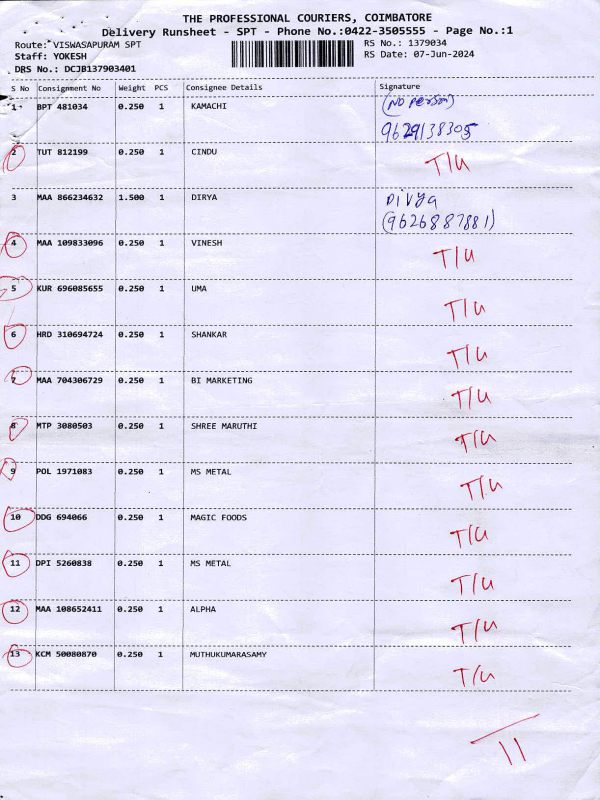 THE PROFESSIONAL COURIERS, COIMBATORE
Delivery Runsheet - SPT - Phone No.:0422-3505555 - Page No.:1
Route: VISWASAPURAM SPT RS No.: 1379034
Staff: YOKESH RS Date: 07-Jun-2024
DRS No.: DCJB137903401
S No Consignment No Weight PCS Consignee Details Signature
1 BPT 481034 0.250 1 KAMACHI (No person)
9629138305
2 TUT 812199 0.250 1 CINDU T/U
3 MAA 866234632 1.500 1 DIRYA Divya
(9626887881)
4 MAA 109833096 0.250 1 VINESH T/U
5 KUR 696085655 0.250 1 UMA T/U
6 HRD 310694724 0.250 1 SHANKAR T/U
7 MAA 704306729 0.250 1 BI MARKETING T/U
8 MTP 3080503 0.250 1 SHREE MARUTHI T/U
9 POL 1971083 0.250 1 MS METAL T/U
10 DDG 694066 0.250 1 MAGIC FOODS T/U
11 DPI 5260838 0.250 1 MS METAL T/U
12 MAA 108652411 0.250 1 ALPHA T/U
13 KCM 50080870 0.250 1 MUTHUKUMARASAMY T/U
11